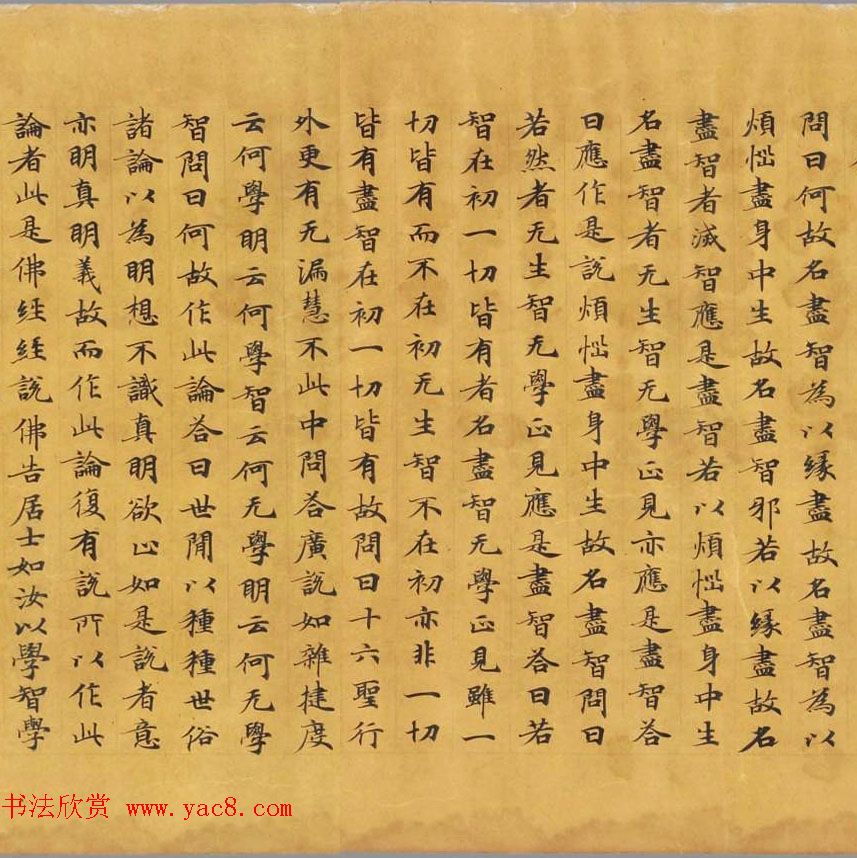 問曰何故名盡智為以緣盡故名盡智為以
煩惱盡身中生故名盡智邪若以緣盡故名
盡智者滅智應是盡智若以煩惱盡身中生
名盡智者无生智无學正見亦應是盡智荅
曰應作是說煩惱盡身中生故名盡智問曰
若然者无生智无學正見應是盡智荅曰若
智在初一切皆有者名盡智无學正見雖一
切皆有而不在初无生智不在初亦非一切
皆有盡智在初一切皆有故問曰十六聖行
外更有无漏慧不此中問荅廣說如雜揵度
云何學明云何學智云何无學明云何无學
智問曰何故作此論荅曰世閒以種種世俗
諸論以為明想不識真明欲止如是說者意
亦明真明義故而作此論復有說所以作此
論者此是佛經經說佛告居士如汝以學智學
书法欣赏 www.yac8.com